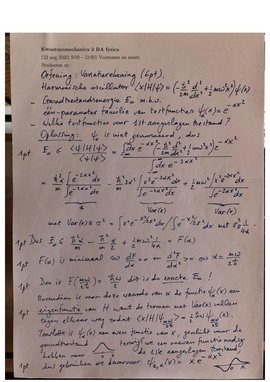 Kwantummechanica 2 BA fysica
(22 aug 2020, 9:00 - 12:00) Voornaam en naam:
Studenten nr:
Oefening: Variatierekening (6pt).
Harmonische oscillator ⟨x|H|ψ⟩ = (-ħ²/2m d²/dx² + 1/2 mω²x²) ψ(x)
- Grondtoestandsenergie E₀ m.b.v.
één-parameter familie van testfuncties ψ_α(x) = e^{-αx²}
- Welke testfunctie voor 1ste aangeslagen toestand?
Oplossing: ψ_α is niet genormeerd, dus
1pt E₀ ≤ ⟨ψ|H|ψ⟩/⟨ψ|ψ⟩ = ∫dx e^{-αx²}(-ħ²/2m d²/dx² + 1/2 mω²x²) e^{-αx²} / ∫dx e^{-2αx²}
met Var(x) = σ² = ∫x² e^{-x²/2σ²} dx / ∫e^{-x²/2σ²} dx met σ² = 1/4α
1pt Dus E₀ ≤
= F(α)
1pt F(α) is minimaal ⇔ dF/dα = 0 en d²F/dα² > 0 ⇔ α = mω/2ħ
1pt Dan is F(mω/2ħ) = ħω/2 dit is de exacte E₀!
Bovendien is men deze waarde van α de functie ψ_α(x) een
1pt eigenfunctie van H want de termen met Var(x) vallen
tegen elkaar weg zodat ⟨x|H|ψ⟩ = 1/2 ħω ψ(x).
1pt Tenslotte is ψ_α(x) een even functie van x, geschikt voor de
grondtoestand terwijl we een oneven functie nodig
hebben voor de 1ste aangeslagen toestand
dus gebruiken we daarvoor ψ_{1,α}(x) = x e^{-αx²}